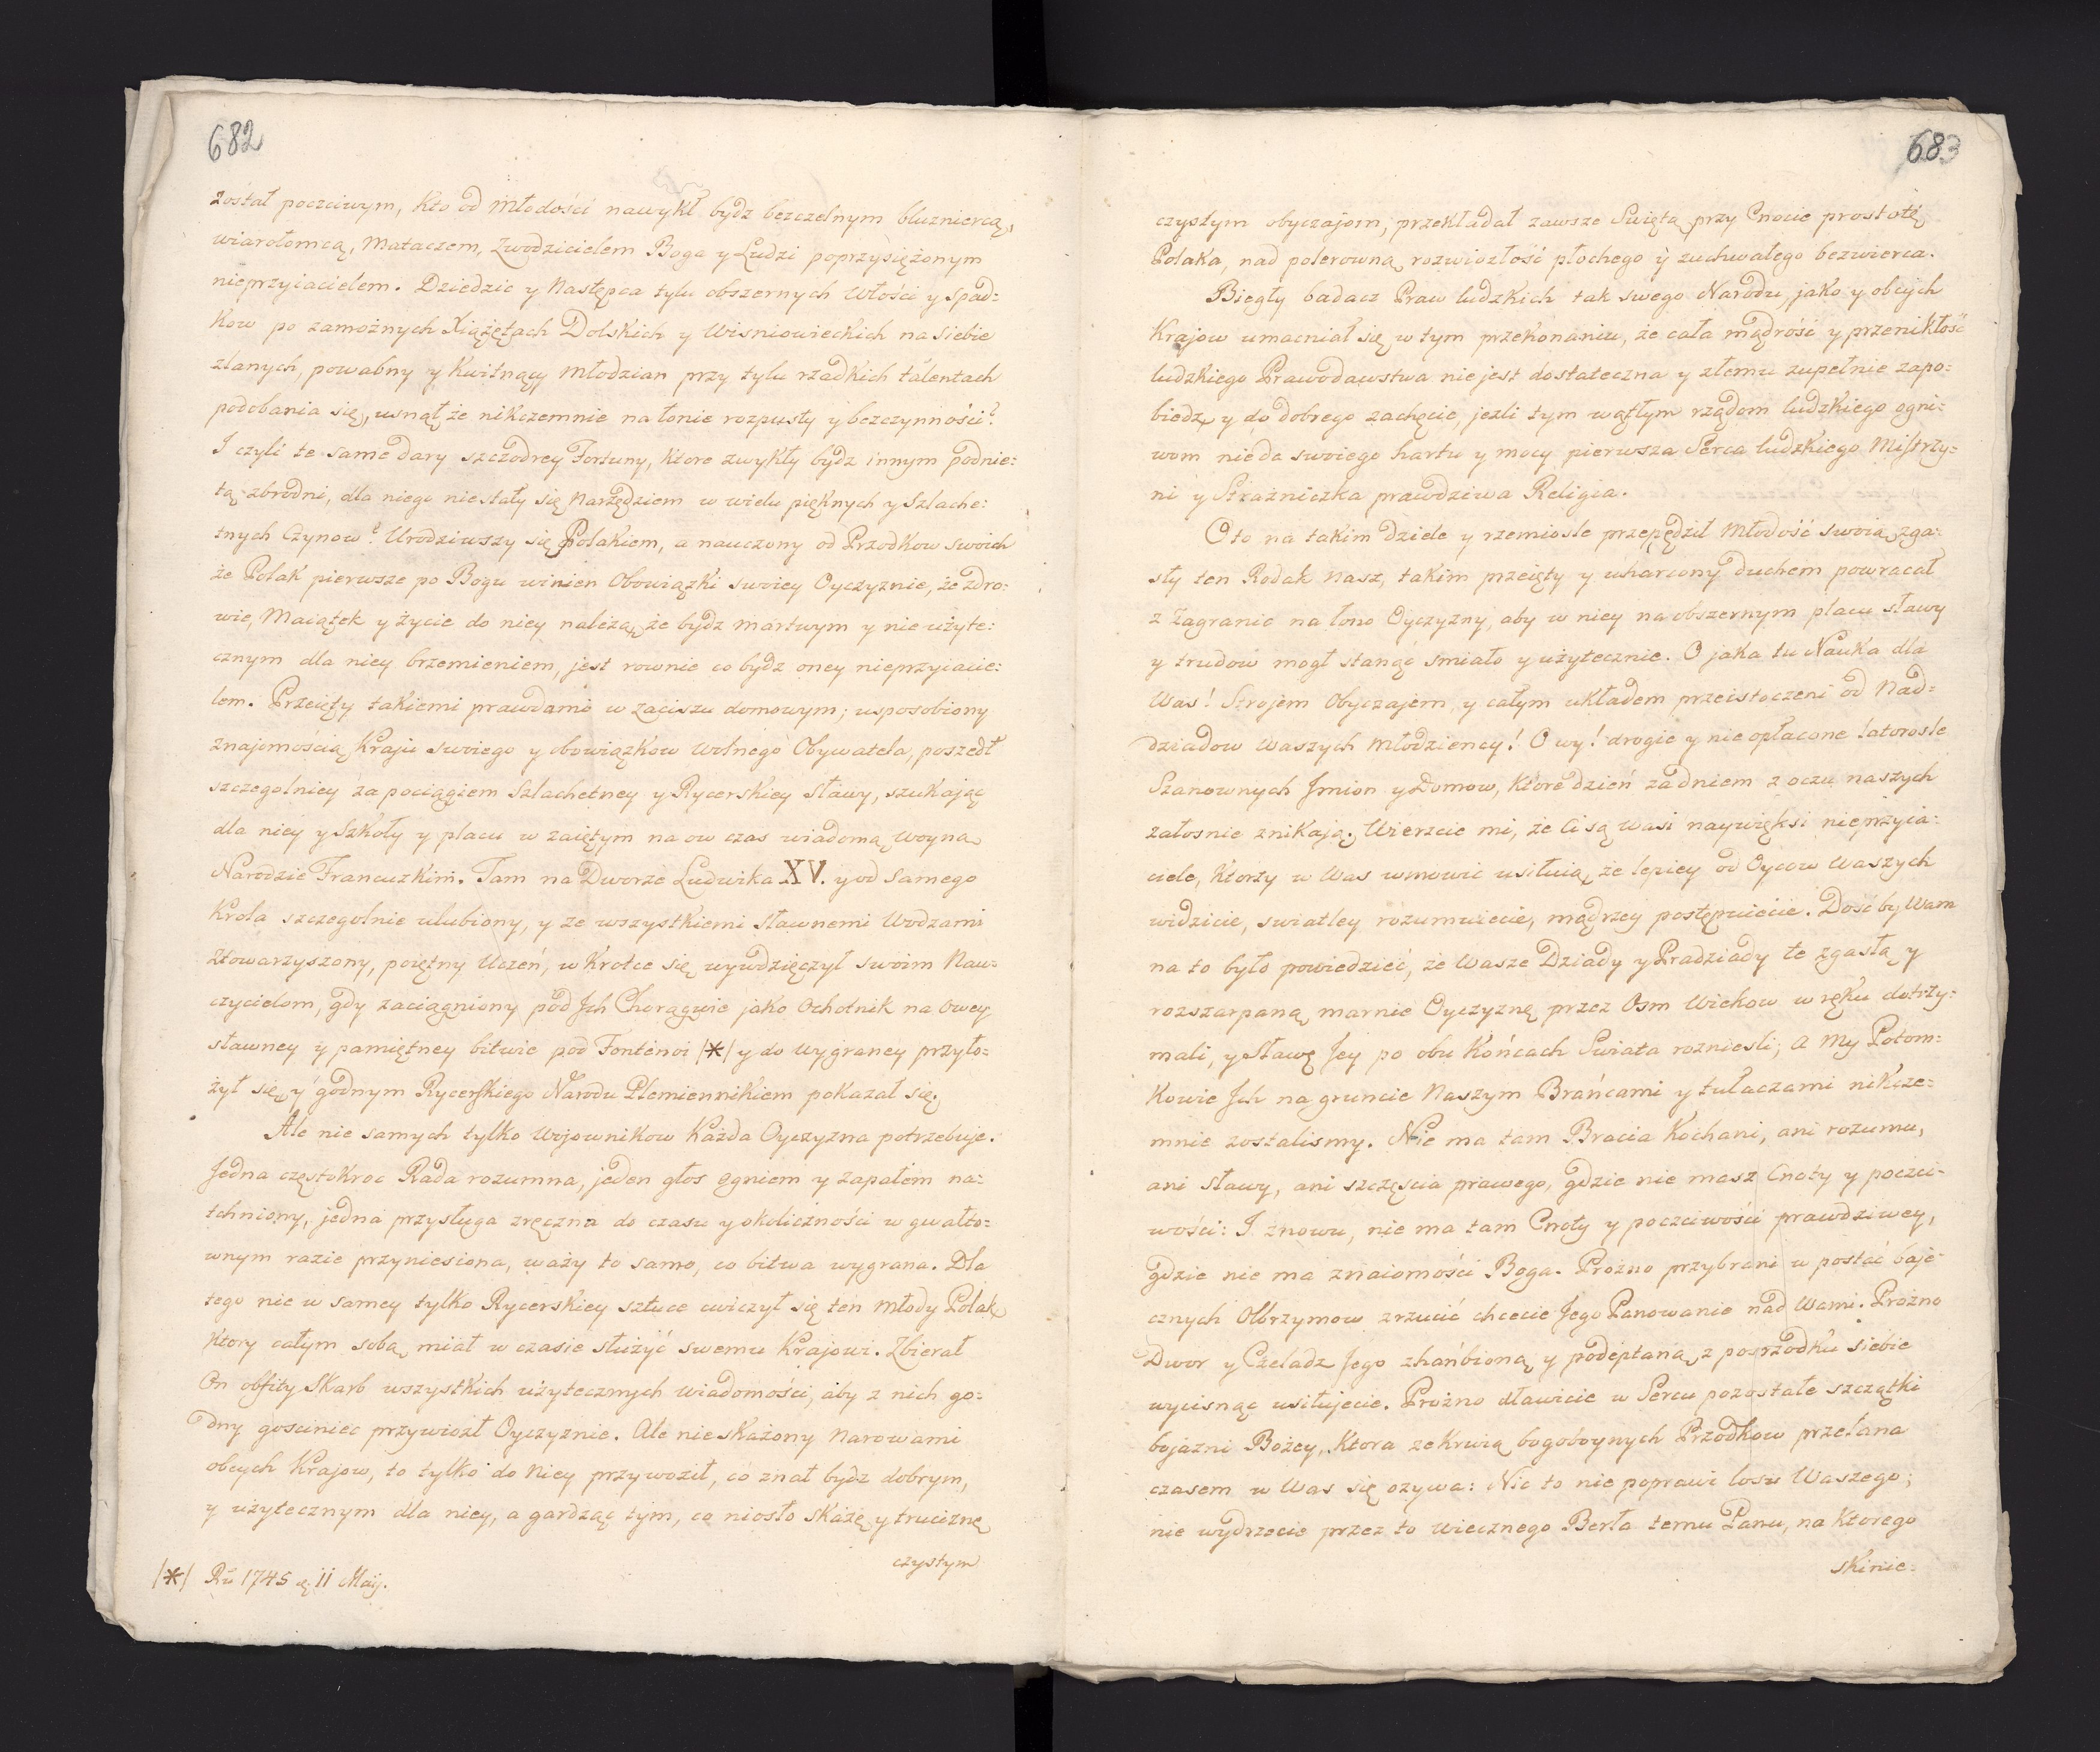 682
został poczciwym, kto od młodości nawykł bydz bezczelnym bluzniercą,
wiarołomcą, Mataczem, Zwodzicielem Boga y Ludzi poprzysiężonym
nieprzyiacielem. Dziedzic y Następca tylu obszernych Włości y spad:
kow po zamożnych Xiążętach Dolskich y Wisniowieckich na siebie
zlanych, powabny y kwitnący młodzian przy tylu rzadkich talentach
podobania się, usnął że nikczemnie na łonie rozpusty y bezczynności?
I czyli te same dary szczodrey Fortuny, ktore zwykły bydz innym podnie:
tą zbrodni, dla niego niestały się Narzędziem w wielu pięknych y Szlache:
tnych Czynow? Urodziwszy się Polakiem, a nauczony od Przodkow swoich
że Polak pierwsze po Bogu winien Obowiązki swoiey Oyczyznie, że zdro:
wie, Maiątek y życie do niey należą, że bydz martwym y nie użyte:
cznym dla niey brzemieniem, jest rownie co bydz oney nieprzyiacie:
lem. Przeięty takiemi prawdami w zaciszu domowym; usposobiony
znajomością Kraju swoiego y obowiązkow wolnego Obywatela, poszedł
szczegolniey za pociągiem Szlachetney y Rycerskiey sławy, szukając
dla niey y Szkoły y placu w zaiętym na ow czas wiadomą woyną
Narodzie Francuzkim. Tam na Dworze Ludwika XV. y od samego
Krola szczegolnie ulubiony, y ze wszystkiemi sławnemi Wodzami
Ztowarzyszony, poiętny Uczeń, w krotce się wywdzięczył swoim Nau-
czycielom, gdy zaciągniony pod Jch Chorągwie jako Ochotnik na owey
sławney y pamiętney bitwie pod Fontenoi /*/ y do wygraney przyło:
żył się, y godnym Rycerskiego Narodu Plemiennikiem pokazał się.
Ale nie samych tylko Wojownikow Każda Oyczyzna potrzebuje.
Jedna częstokroc Rada rozumna, jeden głos ogniem y zapałem na:
tchniony, jedna przysługa zręczna do czasu y okoliczności w gwałto:
wnym razie przyniesiona, waży to samo, co bitwa wygrana. Dla
tego nie w samey tylko Rycerskiey sztuce cwiczył się ten młody Polak
ktory całym sobą miał w czasie służyć swemu Krajowi. Zbierał
On obfity Skarb wszystkich użytecznych wiadomości, aby z nich go:
dny gosciniec przywiozł Oyczyznie. Ale nieskażony Narowami
obcych Krajow, to tylko do Niey przywoził, co znał bydz dobrym,
y użytecznym dla niey, a gardząc tym, co niosło skazę y truciznę
czystym
/*/ Ru 1745 d. 11 Maij.
683
czystym obyczajom, przekładał zawsze Swiętą przy Cnocie prostotę
Polaka, nad polerowną rozwiozłość płochego y zuchwałego bezwierca.
Biegły badacz Praw ludzkich tak swego Narodu, jako y obcych
Krajow umacniał się w tym przekonaniu, że cała mądrość y przenikłość
ludzkiego Prawodawstwa nie jest dostateczna y złemu zupełnie zapo:
biedz y do dobrego zachęcic, jezli tym wątłym rządom ludzkiego ogni:
wom nieda swoiego hartu y mocy pierwsza Serca ludzkiego Mistrzy:
ni y Strażniczka prawdziwa Religia.
Oto na takim dziele y rzemiosle przepędził Młodość swoią zga:
sły ten Rodak nasz, takim przeięty y uharcony duchem powracał
z zagranic na łono Oyczyzny, aby w niey na obszernym placu sławy
y trudow mogł stanąc smiało y użytecznie. O jaka tu Nauka dla
Was! Strojem Obyczajem y całym układem przeistoczeni od Nad-
dziadow Waszych Młodziency! O wy! drogie y nie opłacone latorosle
Szanownych Jmion y Domow, ktore dzień za dniem z oczu naszych
załosnie znikają. Wierzcie mi, że Ci są wasi naywięksi nieprzyia:
ciele, ktorzy w Was wmowic usiłuią, że lepiey od Oycow Waszych
widzicie, swiatley rozumuiecie, mądrzey postępuiecie. Dosć by Wam
na to było powiedzieć, że Wasze Dziady y Pradziady te zgasłą y
rozszarpaną marnie Oyczyznę przez Osm Wiekow w ręku dotrzy:
mali, y Sławę Jey po obu Końcach Swiata rozniesli; a My Potom:
kowie Jch na gruncie Naszym Brańcami y tułaczami nikcze:
mnie zostalismy. Nie ma tam Bracia Kochani, ani rozumu,
ani Sławy, ani szczęscia prawego, gdzie nie masz Cnoty y poczci-
wości: I znowu, nie ma tam Cnoty y poczciwości prawdziwey,
gdzie nie ma znaiomości Boga. Prożno przybrani w postać baje-
cznych Olbrzymow zrzucić chcecie Jego Panowanie nad Wami. Prożno
Dwor y Czeladz Jego zhańbioną y podeptaną z posrzodku siebie
wycisnąc usiłujecie. Prożno dławicie w Sercu pozostałe szczątki
bojazni Bożey, Ktora ze krwią bogoboynych Przodkow przelana
czasem w Was się ozywa: Nic to nie poprawi losu Waszego;
nie wydrzecie przez to wiecznego Berła temu Panu, na Ktorego
skinie-